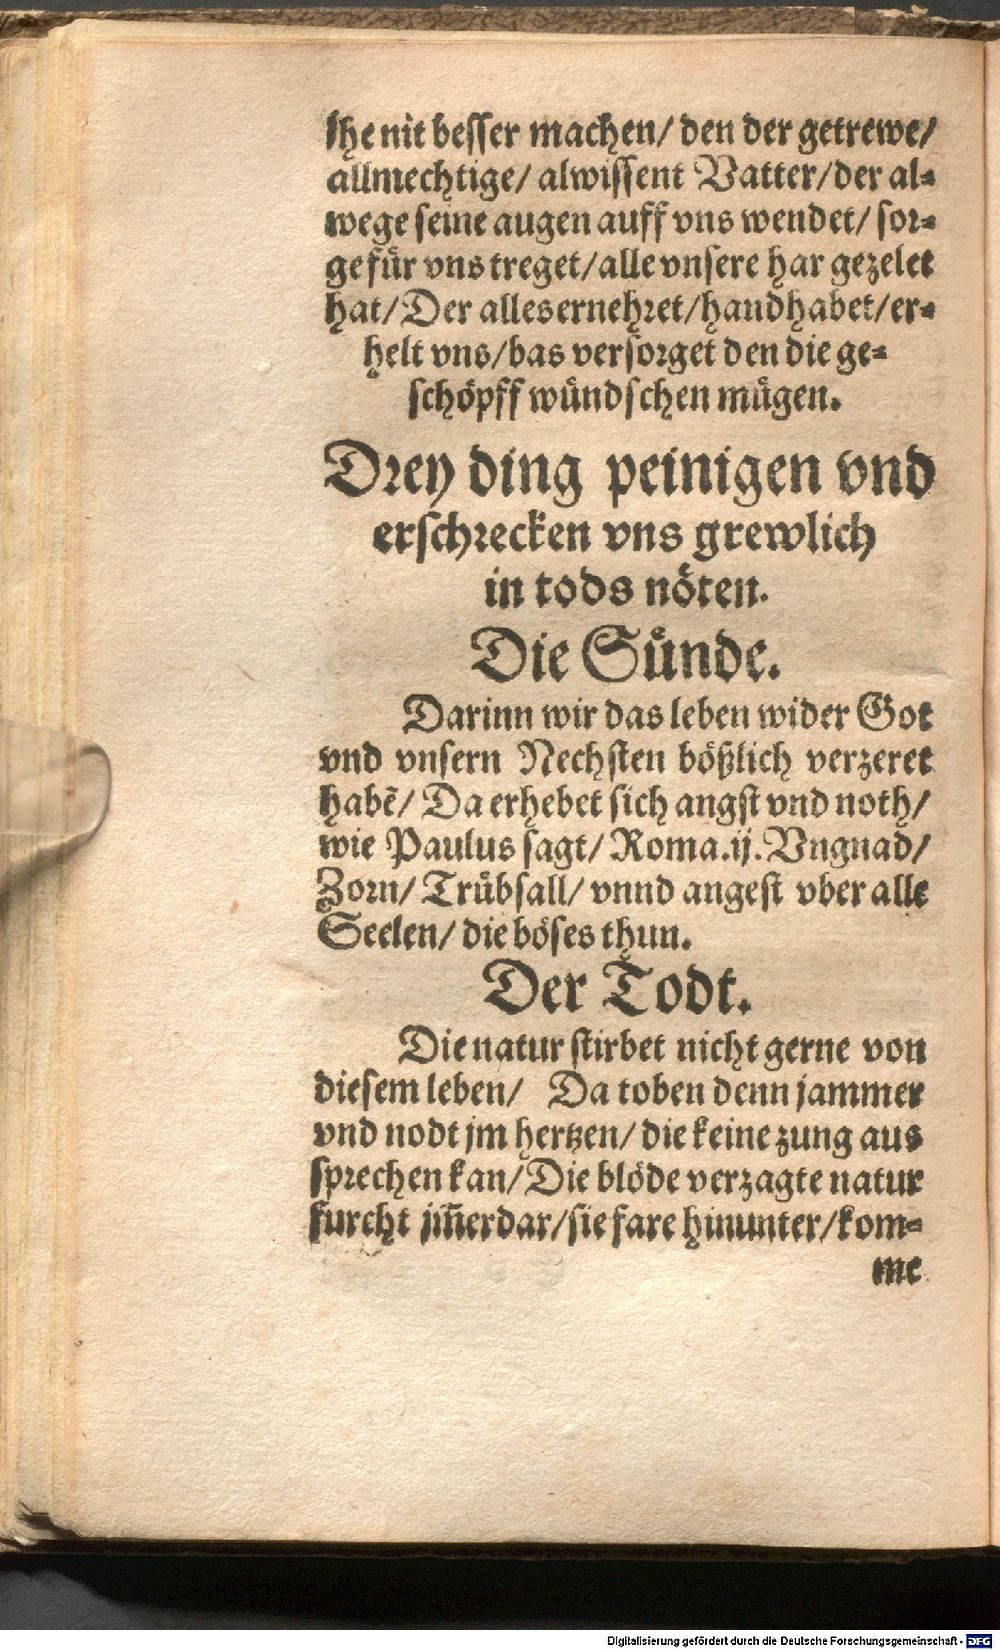 she nit besser machen/ den der getrewe/
allmechtige/ alwissent Vatter/der al-
wege seine augen auff vns wendet/ sor-
ge für vns treget/alle vnsere har gezelet
hat/Der alles ernehret/handhabet/er-
helt vns/bas versorget den die ge-
schöpff wündschen mügen.
Drey ding peinigen vnd
erschrecken vns grewlich
in tods nöten.
Die Sünde.
Darinn wir das leben wider Got
vnd vnsern Nechsten bößlich verzeret
habẽ/ Da erhebet sich angst vnd noth/
wie Paulus sagt/ Roma.ij. Vngnad/
Zorn/ Trübsall/ vnnd angest vber alle
Seelen/ die böses thun.
Der Todt.
Die natur stirbet nicht gerne von
diesem leben/ Da toben denn jammer
vnd nodt jm hertzen/ die keine zung aus
sprechen kan/Die blöde verzagte natur
furcht jm̃erdar/sie fare hinunter/kom-
me
Digitalisierung gefördert durch die Deutsche Forschungsgemeinschaft - DFG